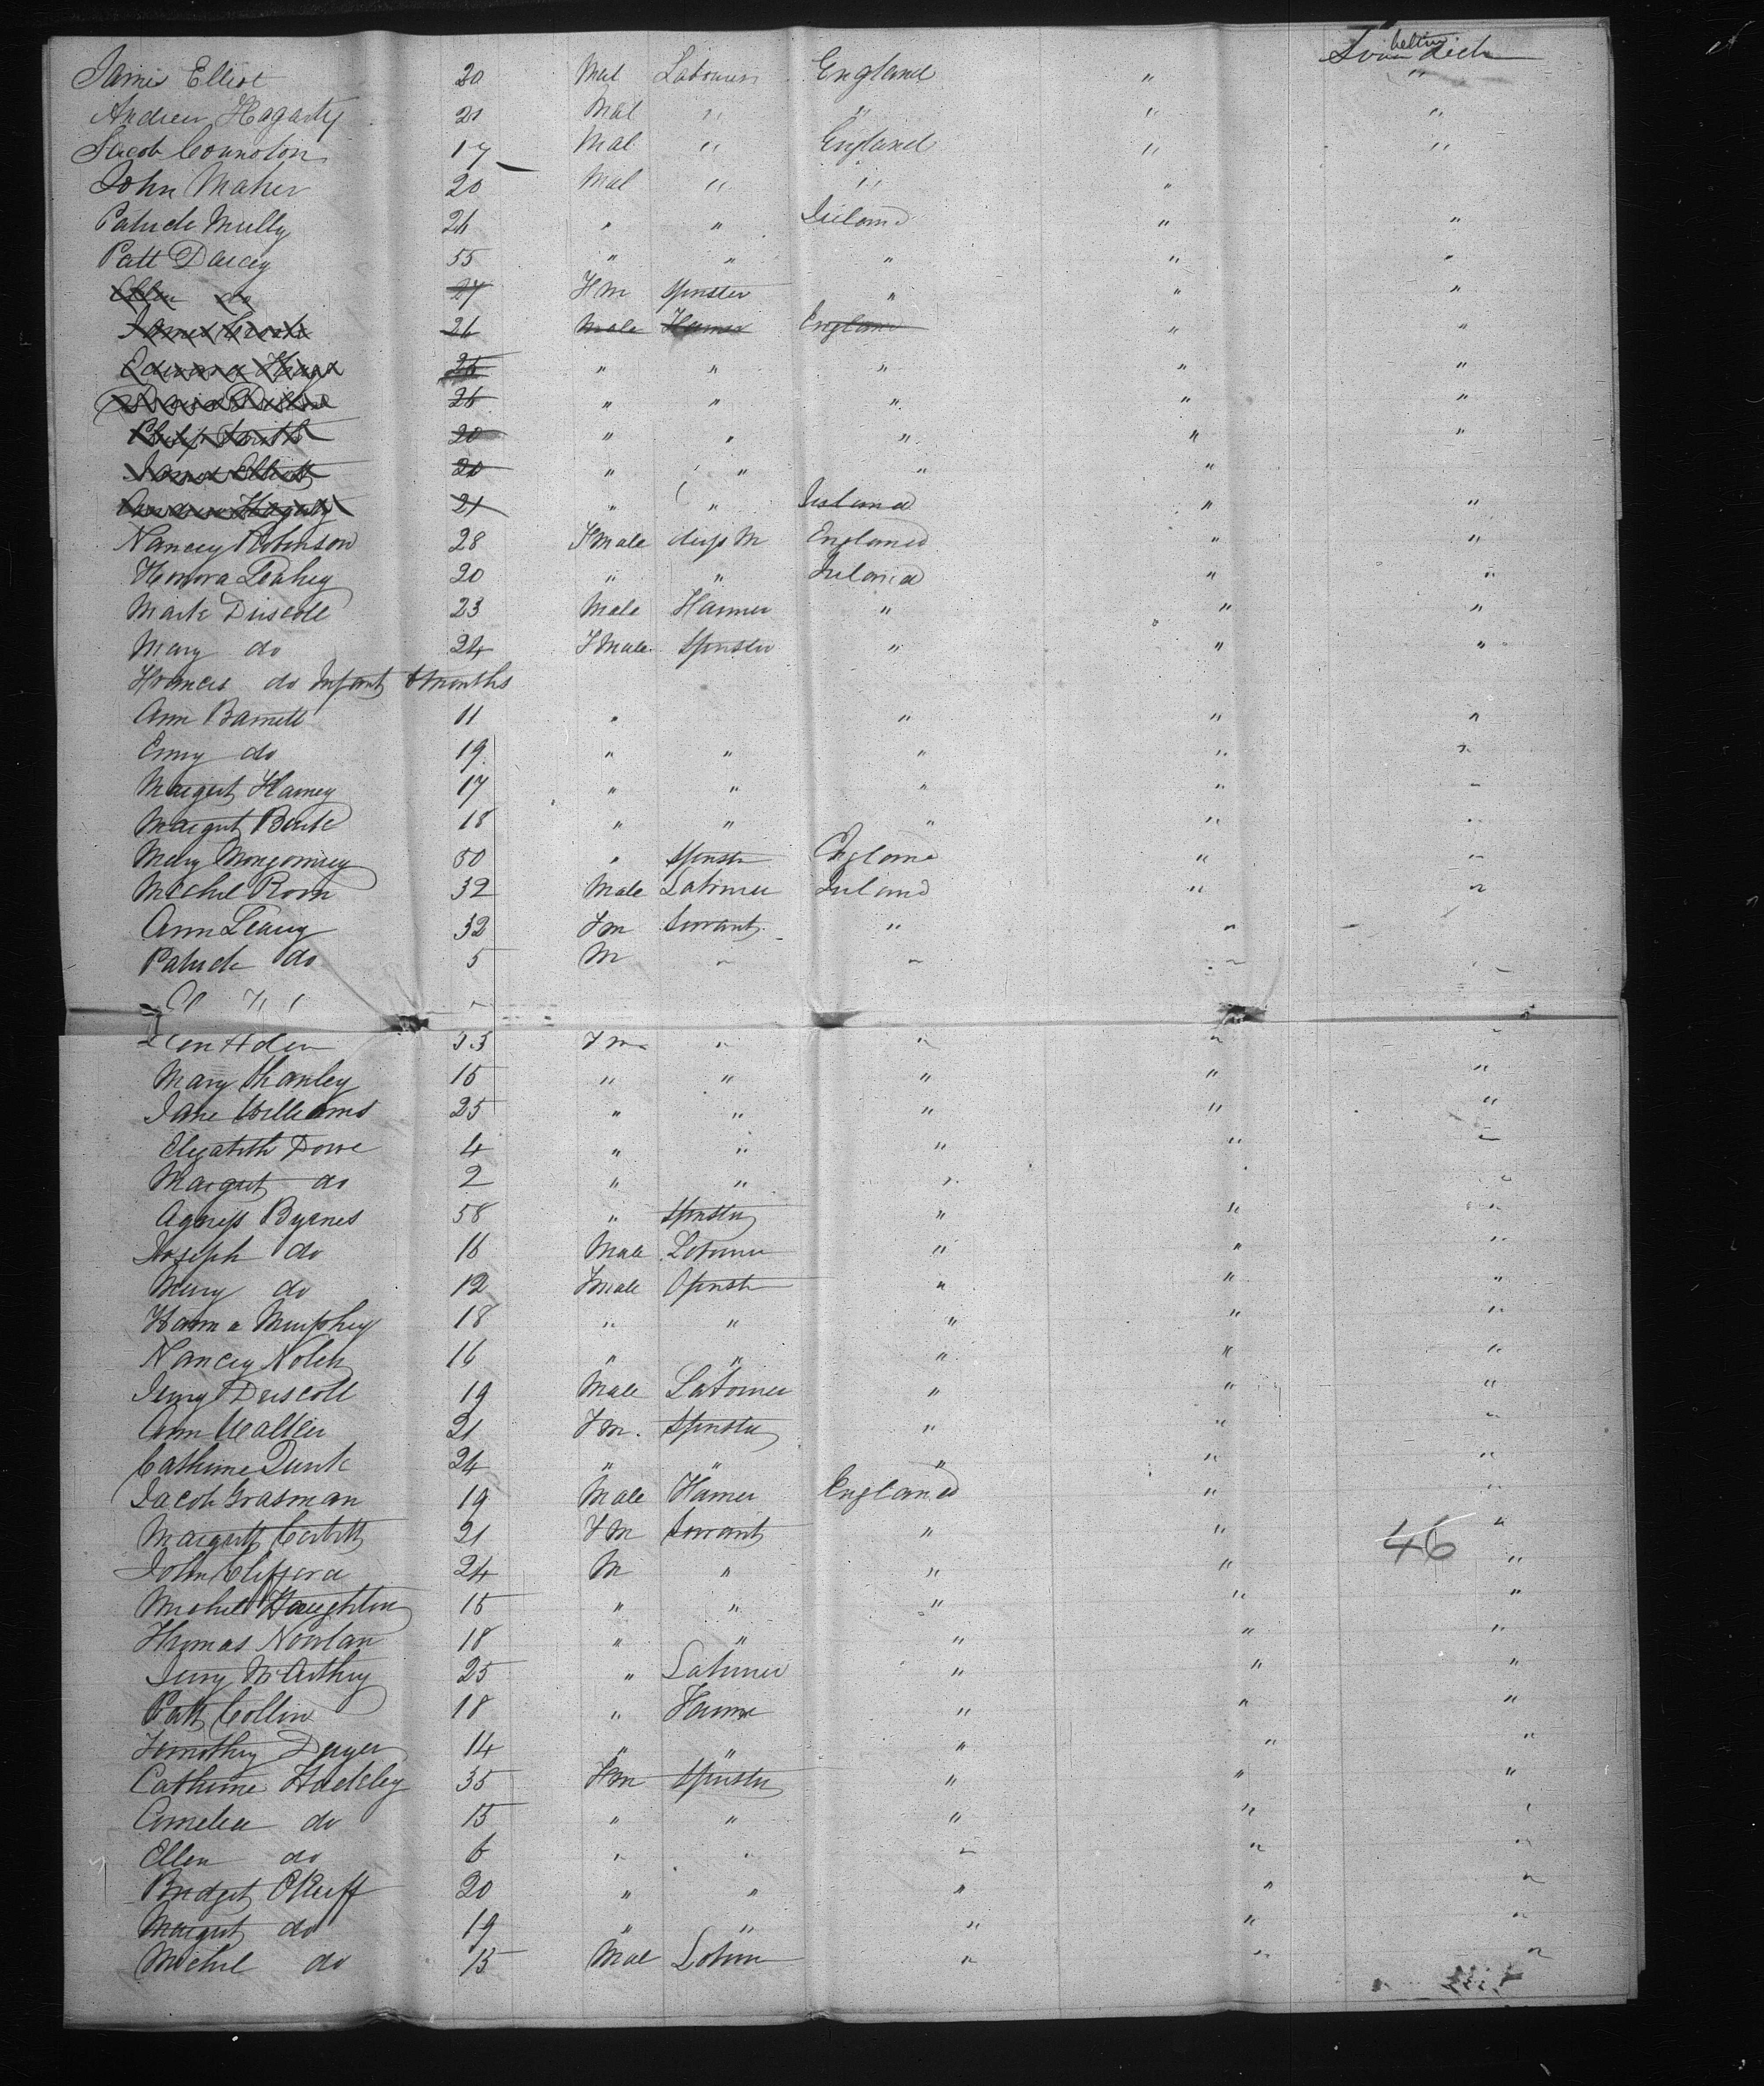 James Elliot 20 Mal Labourer England " Lower between deck
Andrew Hagarty 21 Mal " " " "
Jacob Counston 17 Mal " England " "
John Maher 20 Mal " " "
Patrick Mully 26 " " Ireland " "
Patt Darcey 55 " " " " "
Ellen do 27 F M Spinster " " "
James 26 Male Farmer England " "
Edward 26 " " " " "
26 " " " " "
Philip Smith 20 " " " " "
James Elliott 20 " " " "
Andrew Hagarty 21 " " Ireland " "
Nancey Robinson 28 Fmale England " "
Honora Leahey 20 " " Ireland " "
Mark Driscoll 23 Male Farmer " " "
Mary do 24 Fmale Spinster " " "
Frances do Infant 6 Months
Ann Barrett 11 " " " "
Emy do 19 " " " " "
Margret Harney 17 " " " " "
Margret Burke 18 " " " " "
Mary Mongomrey 50 " Spinstr England " "
Michel Roon 32 Male Labourer Ireland " "
Ann Leary 32 Fm Servant " "
Patrick do 5 M " " "
33 Fm " " " "
Mary Shanley 15 " " " " "
Jane Williams 25 " " " " "
Elizabeth Dowe 4 " " " " "
Margret do 2 " " " "
Agness Byrnes 58 " Spinster " " "
Joseph do 16 Male Labourer " " "
Mary do 12 Fmale Spinstr " " "
Hanna Murphey 18 " " " " "
Nancey Nolen 16 " " " " "
Jerry Driscoll 19 Male Labourer " " "
Ann Walter 21 Fm. Spinster " " "
Catherine Quirk 24 " " " " "
Jacob Grasman 19 Male Farmer England " "
Margrett Corbitt 21 FM Servant " " "
46
John Clifford 24 M " " " "
Michel Haughton 15 " " " " "
Thomas Nowlan 18 " " " " "
Jerry McArthy 25 " Labourer " " "
Patt Collins 18 " Farmer " " "
Timothy Dwyer 14 " " " " "
Catherine Hadsley 35 Fm Spinster " " "
Amelia do 15 " " " " "
Ellen do 6 " " " " "
Bridget OKeiff 20 " " " " "
Margret do 19 " " " " "
Michel do 15 Mal Labour " " "